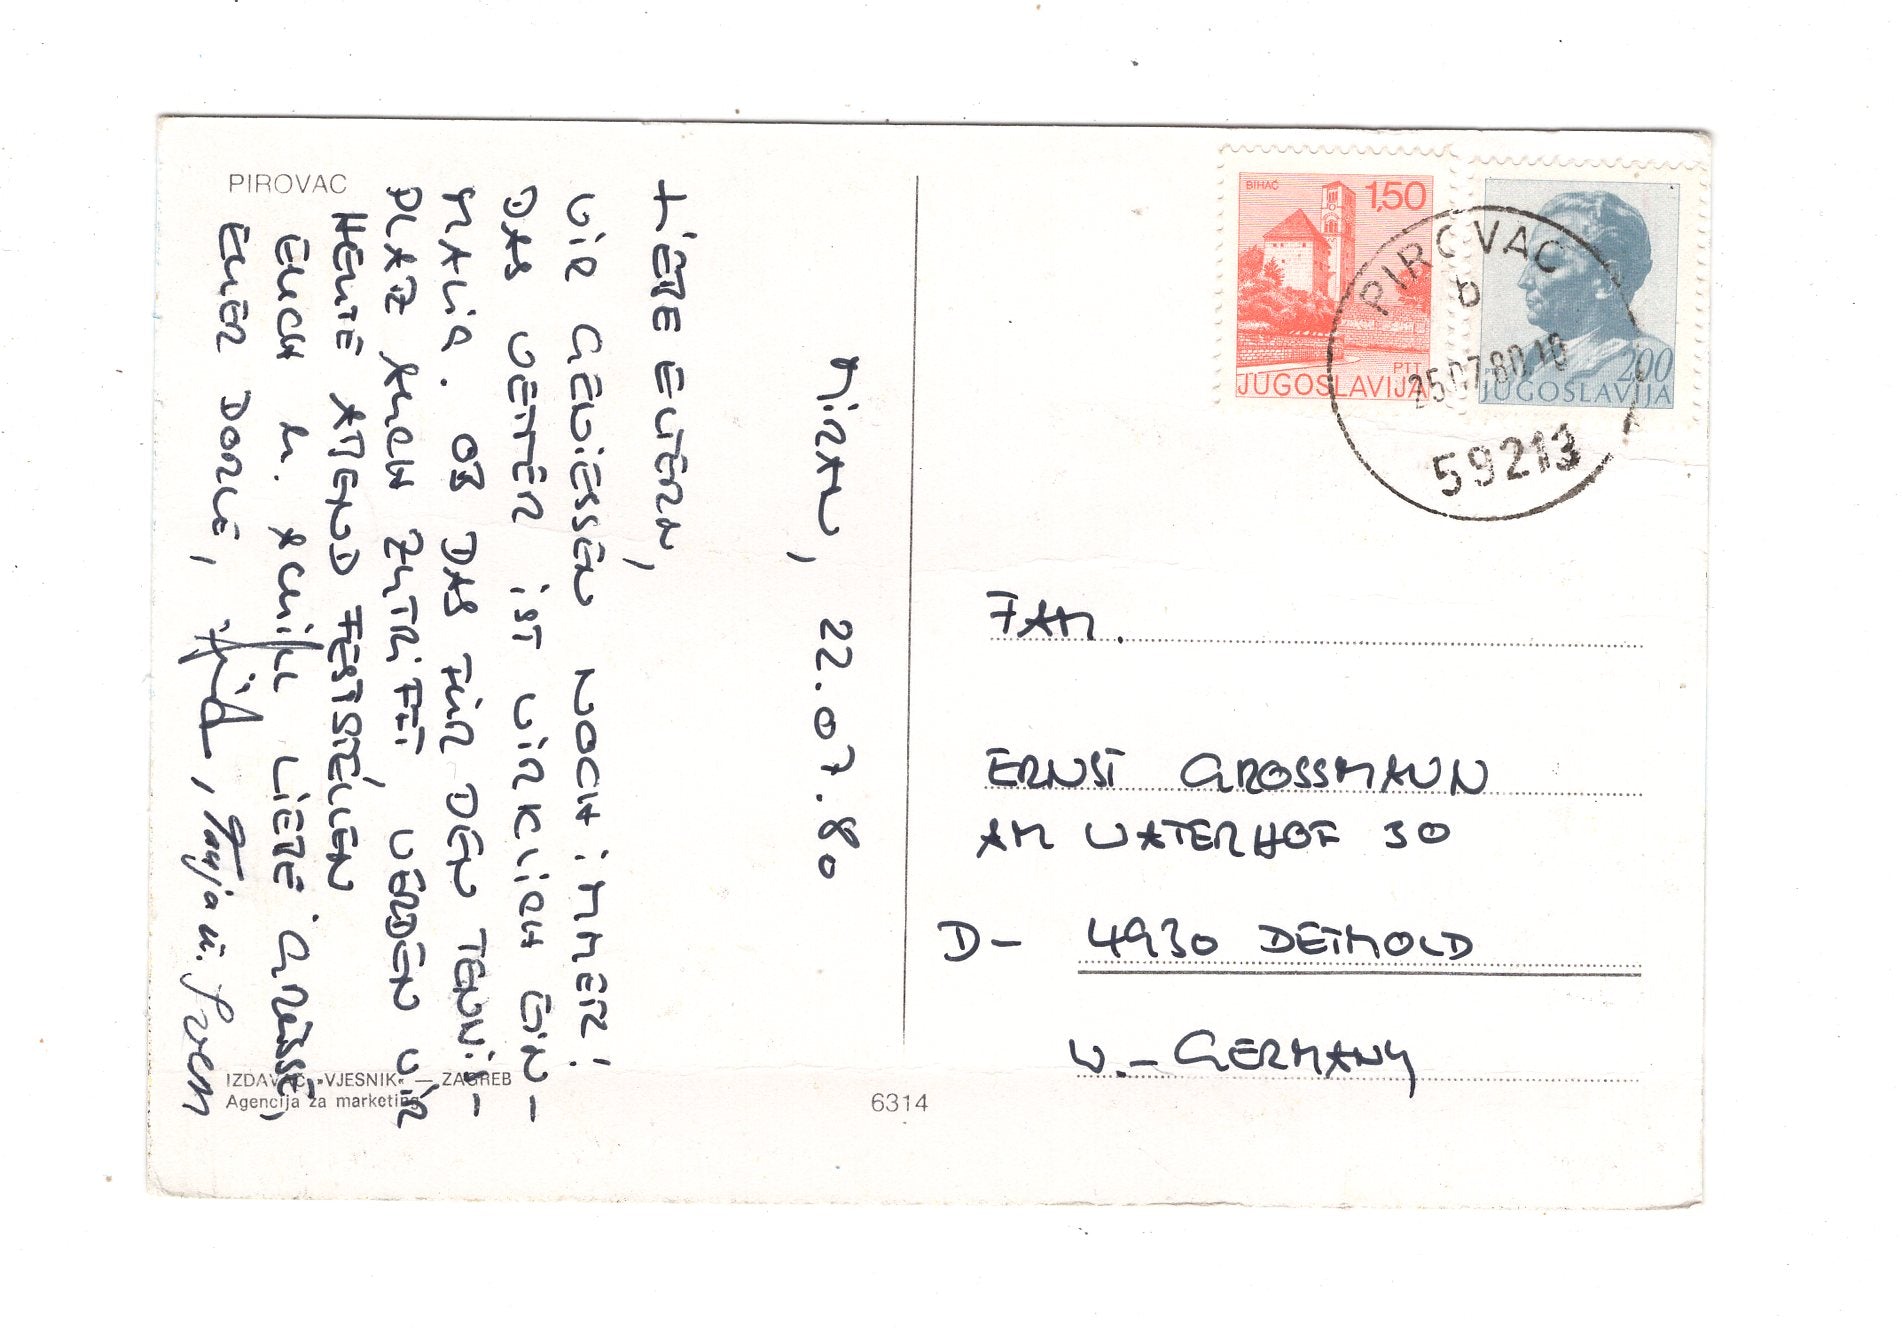 PIROVAC
MIRAN, 22.07.80
LIEBE ELTERN,
WIR GENIESSEN NOCH IMMER!
DAS WETTER IST WIRKLICH EIN-
MALIG. OB DAS FÜR DEN TENNIS-
PLATZ AUCH ZUTRIFFT, WERDEN WIR
HEUTE ABEND FESTSTELLEN
EUCH U. ACHILL LIEBE GRÜSSE,
EUER DORLE, , Tanja u. Sven
IZDAVAČ »VJESNIK« — ZAGREB
Agencija za marketing
6314
BIHAĆ
1,50
PTT
JUGOSLAVIJA
2.00
JUGOSLAVIJA
PIROVAC
b
25.07.80.10
59213
FAM.
ERNST GROSSMANN
AM WATERHOF 30
D- 4930 DETMOLD
W.-GERMANY